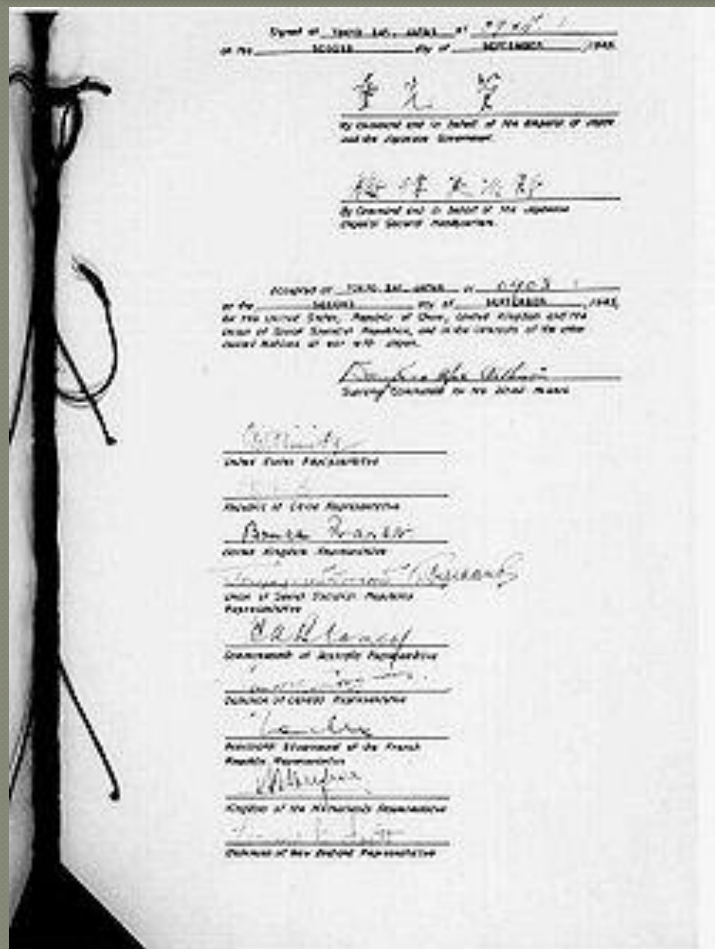 Signed at TOKYO BAY, JAPAN at 0904 I
on the SECOND day of SEPTEMBER, 1945.
重光 葵
By Command and in behalf of the Emperor of Japan
and the Japanese Government.
梅津美治郎
By Command and in behalf of the Japanese
Imperial General Headquarters.
Accepted at TOKYO BAY, JAPAN at 0908 I
on the SECOND day of SEPTEMBER, 1945,
for the United States, Republic of China, United Kingdom and the
Union of Soviet Socialist Republics, and in the interests of the other
United Nations at war with Japan.
Supreme Commander for the Allied Powers
United States Representative
Republic of China Representative
Bruce Fraser
United Kingdom Representative
Union of Soviet Socialist Republics
Representative
Commonwealth of Australia Representative
Dominion of Canada Representative
Provisional Government of the French
Republic Representative
Kingdom of the Netherlands Representative
Dominion of New Zealand Representative